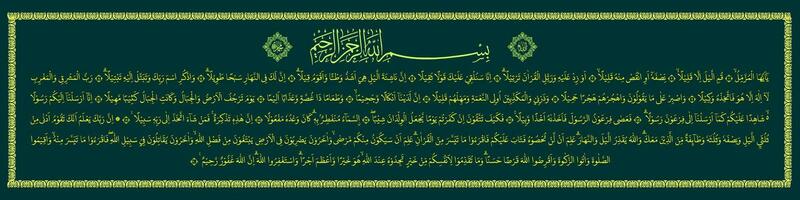 بِسْمِ اللّٰهِ الرَّحْمٰنِ الرَّحِيْمِ
يٰٓاَيُّهَا الْمُزَّمِّلُۙ ۞ قُمِ الَّيْلَ اِلَّا قَلِيْلًاۙ ۞ نِّصْفَهٗٓ اَوِ انْقُصْ مِنْهُ قَلِيْلًاۙ ۞ اَوْ زِدْ عَلَيْهِ وَرَتِّلِ الْقُرْاٰنَ تَرْتِيْلًاۗ ۞ اِنَّا سَنُلْقِيْ عَلَيْكَ قَوْلًا ثَقِيْلًا ۞ اِنَّ نَاشِئَةَ الَّيْلِ هِيَ اَشَدُّ وَطْـًٔا وَّاَقْوَمُ قِيْلًاۗ ۞ اِنَّ لَكَ فِى النَّهَارِ سَبْحًا طَوِيْلًاۗ ۞ وَاذْكُرِ اسْمَ رَبِّكَ وَتَبَتَّلْ اِلَيْهِ تَبْتِيْلًاۗ ۞ رَبُّ الْمَشْرِقِ وَالْمَغْرِبِ
لَآ اِلٰهَ اِلَّا هُوَ فَاتَّخِذْهُ وَكِيْلًا ۞ وَاصْبِرْ عَلٰى مَا يَقُوْلُوْنَ وَاهْجُرْهُمْ هَجْرًا جَمِيْلًا ۞ وَذَرْنِيْ وَالْمُكَذِّبِيْنَ اُولِى النَّعْمَةِ وَمَهِّلْهُمْ قَلِيْلًا ۞ اِنَّ لَدَيْنَآ اَنْكَالًا وَّجَحِيْمًاۙ ۞ وَّطَعَامًا ذَا غُصَّةٍ وَّعَذَابًا اَلِيْمًا ۞ يَوْمَ تَرْجُفُ الْاَرْضُ وَالْجِبَالُ وَكَانَتِ الْجِبَالُ كَثِيْبًا مَّهِيْلًا ۞ اِنَّآ اَرْسَلْنَآ اِلَيْكُمْ رَسُوْلًا
شَاهِدًا عَلَيْكُمْ كَمَآ اَرْسَلْنَآ اِلٰى فِرْعَوْنَ رَسُوْلًاۗ ۞ فَعَصٰى فِرْعَوْنُ الرَّسُوْلَ فَاَخَذْنٰهُ اَخْذًا وَّبِيْلًاۚ ۞ فَكَيْفَ تَتَّقُوْنَ اِنْ كَفَرْتُمْ يَوْمًا يَّجْعَلُ الْوِلْدَانَ شِيْبًاۖ ۞ ۨالسَّمَاۤءُ مُنْفَطِرٌۢ بِهٖۗ كَانَ وَعْدُهٗ مَفْعُوْلًا ۞ اِنَّ هٰذِهٖ تَذْكِرَةٌۚ فَمَنْ شَاۤءَ اتَّخَذَ اِلٰى رَبِّهٖ سَبِيْلًا ۞ اِنَّ رَبَّكَ يَعْلَمُ اَنَّكَ تَقُوْمُ اَدْنٰى مِنْ
ثُلُثَيِ الَّيْلِ وَنِصْفَهٗ وَثُلُثَهٗ وَطَاۤىِٕفَةٌ مِّنَ الَّذِيْنَ مَعَكَۗ وَاللّٰهُ يُقَدِّرُ الَّيْلَ وَالنَّهَارَۗ عَلِمَ اَنْ لَّنْ تُحْصُوْهُ فَتَابَ عَلَيْكُمْ فَاقْرَءُوْا مَا تَيَسَّرَ مِنَ الْقُرْاٰنِۗ عَلِمَ اَنْ سَيَكُوْنُ مِنْكُمْ مَّرْضٰىۙ وَاٰخَرُوْنَ يَضْرِبُوْنَ فِى الْاَرْضِ يَبْتَغُوْنَ مِنْ فَضْلِ اللّٰهِۙ وَاٰخَرُوْنَ يُقَاتِلُوْنَ فِيْ سَبِيْلِ اللّٰهِۖ فَاقْرَءُوْا مَا تَيَسَّرَ مِنْهُۙ وَاَقِيْمُوا
الصَّلٰوةَ وَاٰتُوا الزَّكٰوةَ وَاَقْرِضُوا اللّٰهَ قَرْضًا حَسَنًاۗ وَمَا تُقَدِّمُوْا لِاَنْفُسِكُمْ مِّنْ خَيْرٍ تَجِدُوْهُ عِنْدَ اللّٰهِ هُوَ خَيْرًا وَّاَعْظَمَ اَجْرًاۗ وَاسْتَغْفِرُوا اللّٰهَۗ اِنَّ اللّٰهَ غَفُوْرٌ رَّحِيْمٌ ۞